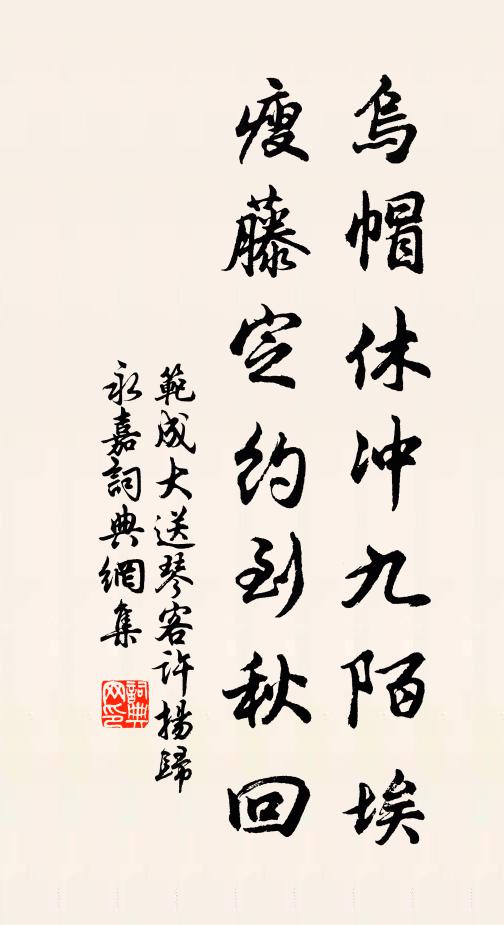 烏帽休冲九陌埃
瘦藤定約到秋回
範成大送琴客許揚歸
永嘉詞典網集
詞典网印